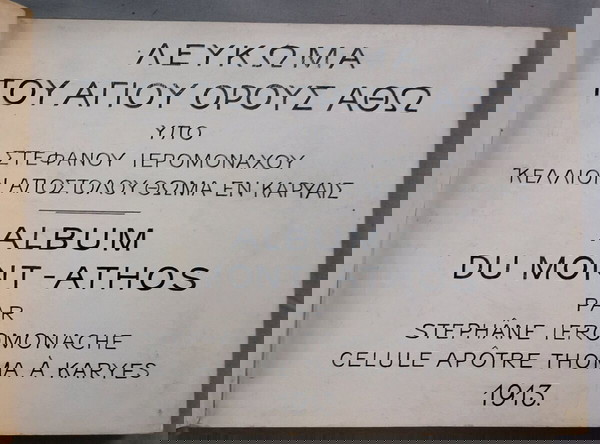 ΛΕΥΚΩΜΑ
ΤΟΥ ΑΓΙΟΥ ΟΡΟΥΣ ΑΘΩ
ΥΠΟ
ΣΤΕΦΑΝΟΥ ΙΕΡΟΜΟΝΑΧΟΥ
ΚΕΛΛΙΟΝ ΑΠΟΣΤΟΛΟΥ ΘΩΜΑ ΕΝ ΚΑΡΥΑΙΣ
ALBUM
DU MONT-ATHOS
PAR
STEPHÂNE IEROMONACHE
CELULE APÔTRE THOMA À KARYES
1913.